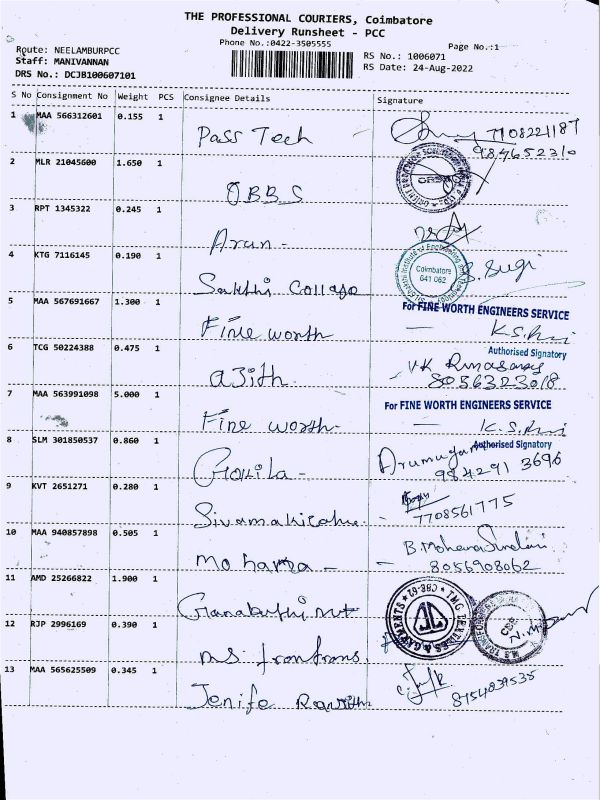 THE PROFESSIONAL COURIERS, Coimbatore
Delivery Runsheet - PCC
Phone No.:0422-3505555
Page No.:1
Route: NEELAMBURPCC
Staff: MANIVANNAN
DRS No.: DCJB100607101
RS No.: 1006071
RS Date: 24-Aug-2022
S No Consignment No Weight PCS Consignee Details Signature
1 MAA 566312601 0.155 1 Pass Tech 7708221187
9384652310
2 MLR 21045600 1.650 1 OBBS
3 RPT 1345322 0.245 1 Arun -
4 KTG 7116145 0.190 1 Sakthi College S. Sugi
Coimbatore
641 062
5 MAA 567691667 1.300 1 Fine worth
For FINE WORTH ENGINEERS SERVICE
Authorised Signatory
6 TCG 50224388 0.475 1 aJith. VK
8056323018
7 MAA 563991098 5.000 1 Fine worth-
For FINE WORTH ENGINEERS SERVICE
Authorised Signatory
8 SLM 301850537 0.860 1 Gokila - Arumugam
984291 3696
9 KVT 2651271 0.280 1
7708561775
10 MAA 940857898 0.505 1 Mohana - B. Mohana
8056908062
11 AMD 25266822 1.900 1
TMG TEXTILES & GARMENTS * CBE-62 *
12 RJP 2996169 0.390 1
13 MAA 565625509 0.345 1 Jenife 8754839535